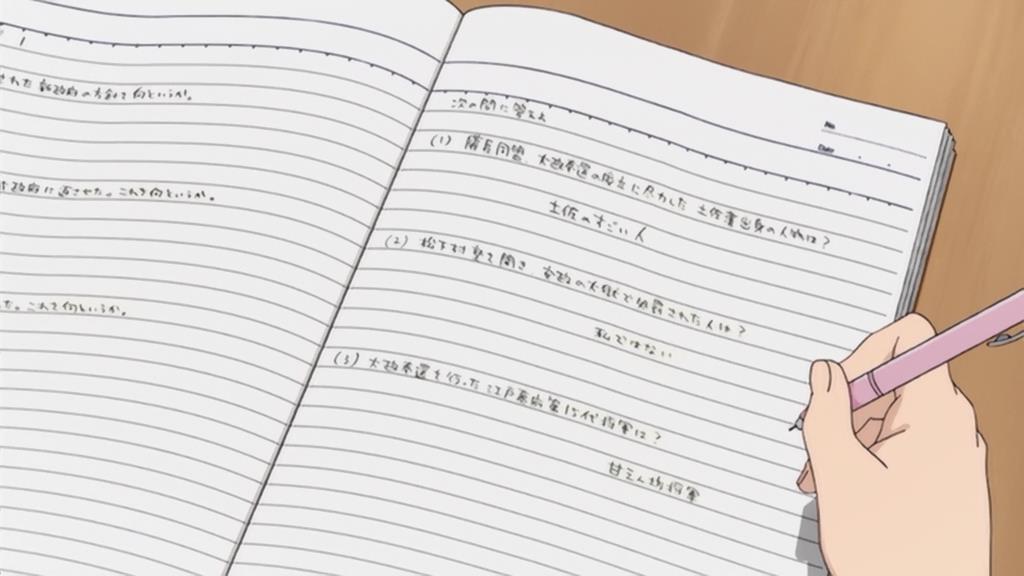 された新政府の方針を何というか。
政府に返させた。これを何というか。
た。これを何というか。
No.
Date
次の問に答えよ
(1) 薩長同盟、大政奉還の成立に尽力した土佐藩出身の人物は?
土佐のすごい人
(2) 松下村塾を開き、安政の大獄で処罰された人は?
私ではない
(3) 大政奉還を行った江戸幕府第15代将軍は?
甘えん坊将軍